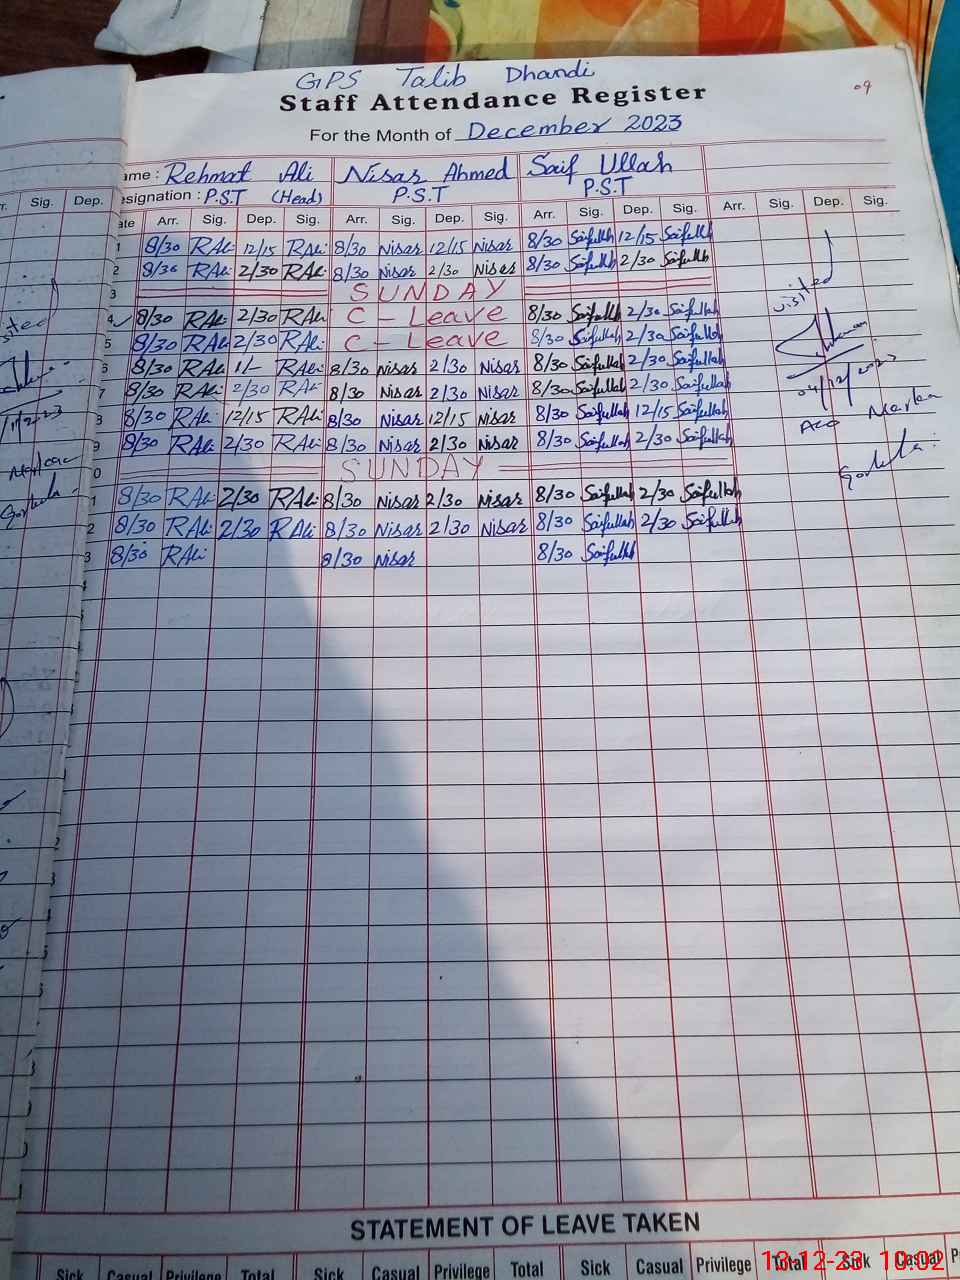 GPS Talib Dhandi
09
Staff Attendance Register
For the Month of December 2023
ame : Rehmat Ali Nisar Ahmed Saif Ullah
esignation : P.S.T (Head) P.S.T P.S.T
r. Sig. Dep. ate Arr. Sig. Dep. Sig. Arr. Sig. Dep. Sig. Arr. Sig. Dep. Sig. Arr. Sig. Dep. Sig.
1 8/30 RAli 12/15 RAli 8/30 Nisar 12/15 Nisar 8/30 Saifullah 12/15 Saifullah
2 8/30 RAli 2/30 RAli 8/30 Nisar 2/30 Nisar 8/30 Saifullah 2/30 Saifullah
3 SUNDAY
visited
4 8/30 RAli 2/30 RAli C - Leave 8/30 Saifullah 2/30 Saifullah
5 8/30 RAli 2/30 RAli C - Leave 8/30 Saifullah 2/30 Saifullah
6 8/30 RAli 1/- RAli 8/30 Nisar 2/30 Nisar 8/30 Saifullah 2/30 Saifullah
7 8/30 RAli 2/30 RAli 8/30 Nisar 2/30 Nisar 8/30 Saifullah 2/30 Saifullah
04/12/2023
8 8/30 RAli 12/15 RAli 8/30 Nisar 12/15 Nisar 8/30 Saifullah 12/15 Saifullah
9 8/30 RAli 2/30 RAli 8/30 Nisar 2/30 Nisar 8/30 Saifullah 2/30 Saifullah
0 SUNDAY
1 8/30 RAli 2/30 RAli 8/30 Nisar 2/30 Nisar 8/30 Saifullah 2/30 Saifullah
2 8/30 RAli 2/30 RAli 8/30 Nisar 2/30 Nisar 8/30 Saifullah 2/30 Saifullah
3 8/30 RAli 8/30 Nisar 8/30 Saifullah
STATEMENT OF LEAVE TAKEN
Sick Casual Privilege Total Sick Casual Privilege Total Sick Casual Privilege Total Sick Casual P
13-12-23 10:02